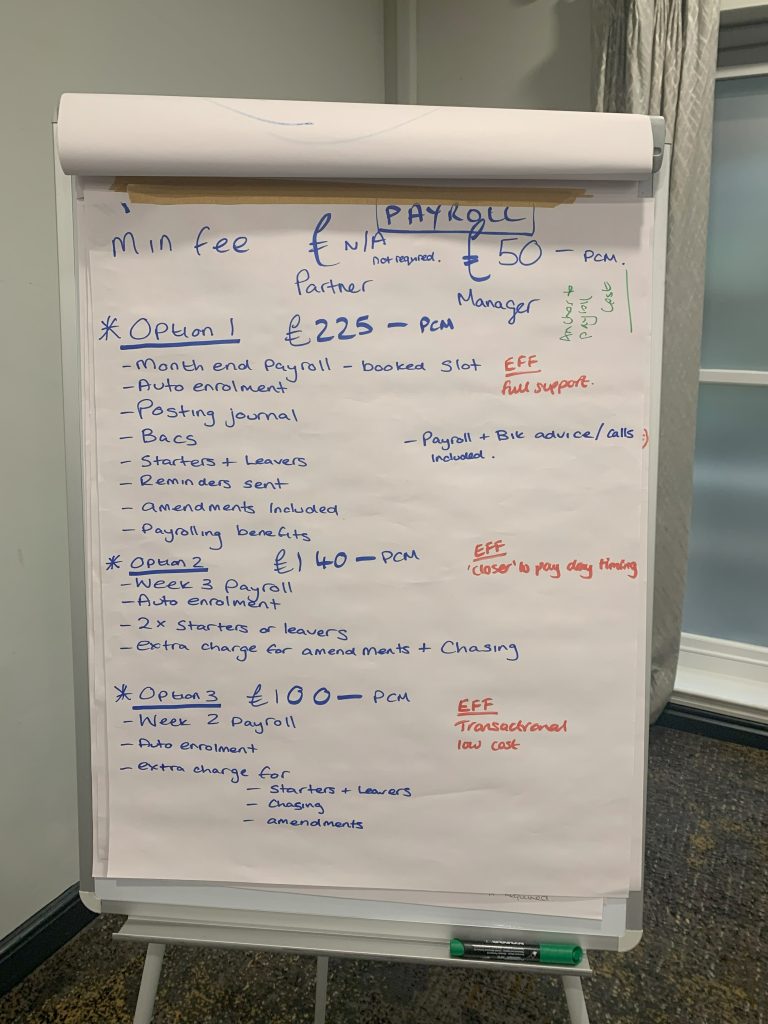 PAYROLL
Min fee £ N/A not required. £50 - PCM.
Partner Manager
Anchor to
payroll
cost
* Option 1 £225 - PCM
- Month end Payroll - booked slot EFF
- Auto enrolment full support.
- Posting journal
- Bacs - Payroll + Bik advice/calls :)
- Starters + Leavers included.
- Reminders sent
- amendments included
- Payrolling benefits
* Option 2 £140 - PCM EFF
- Week 3 Payroll 'closer' to pay day timing
- Auto enrolment
- 2x starters or leavers
- extra charge for amendments + chasing
* Option 3 £100 - PCM EFF
- Week 2 Payroll Transactional
- Auto enrolment low cost
- extra charge for
- Starters + Leavers
- chasing
- amendments
required